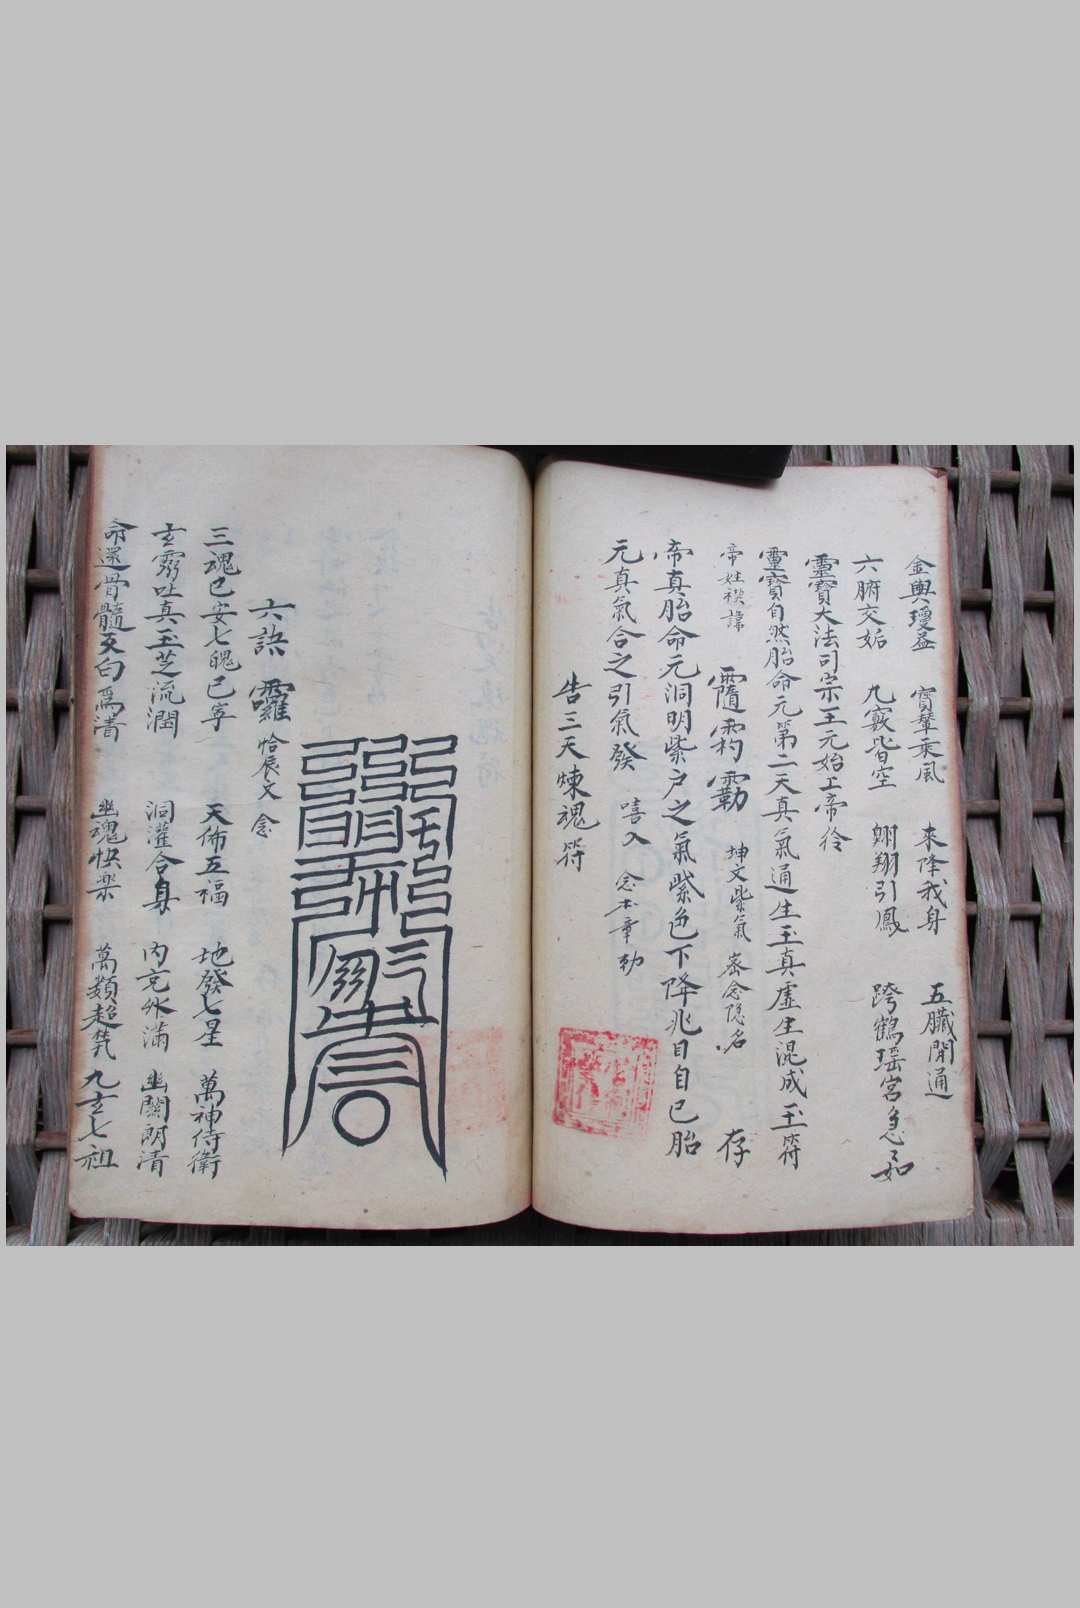 金輿瓊益 寳輦乘風 來降我身 五臓開通
六腑交姤 九竅皆空 翱翔引鳳 跨鶴瑶宮急如
靈寶大法司宗王元始上帝律
靈寶自然胎命元第二天真氣通生玉真虚生混成玉符
帝姓 諱 坤文紫氣 密念隐名 存
帝真胎命元洞明紫户之氣紫色下降兆目自已胎
元真氣合之引氣發 嘻入 念本章勅
告三天煉魂符
六訣 囉 恰辰文 念
三魂已安七魄已寧 天佈五福 地發七星 萬神侍衛
玄 吐真玉芝流潤 洞灌合身 内充外滿 幽關朗清
命還骨髓 白爲清 幽魂快樂 萬類超 九玄七祖